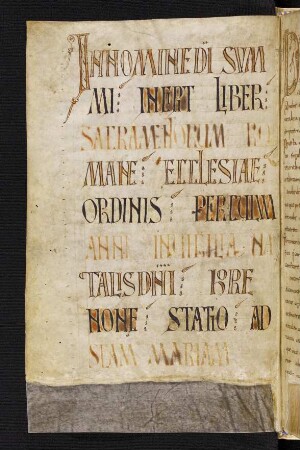 IN NOMINE DI SUM
MI INCPT LIBER
SACRAMENTORUM RO
MANE ECCLESIAE
ORDINIS PER CIRCULUM
ANNI IN UIGILIA NA
TALIS DNI
NONE STATIO AD
SCAM MARIAM